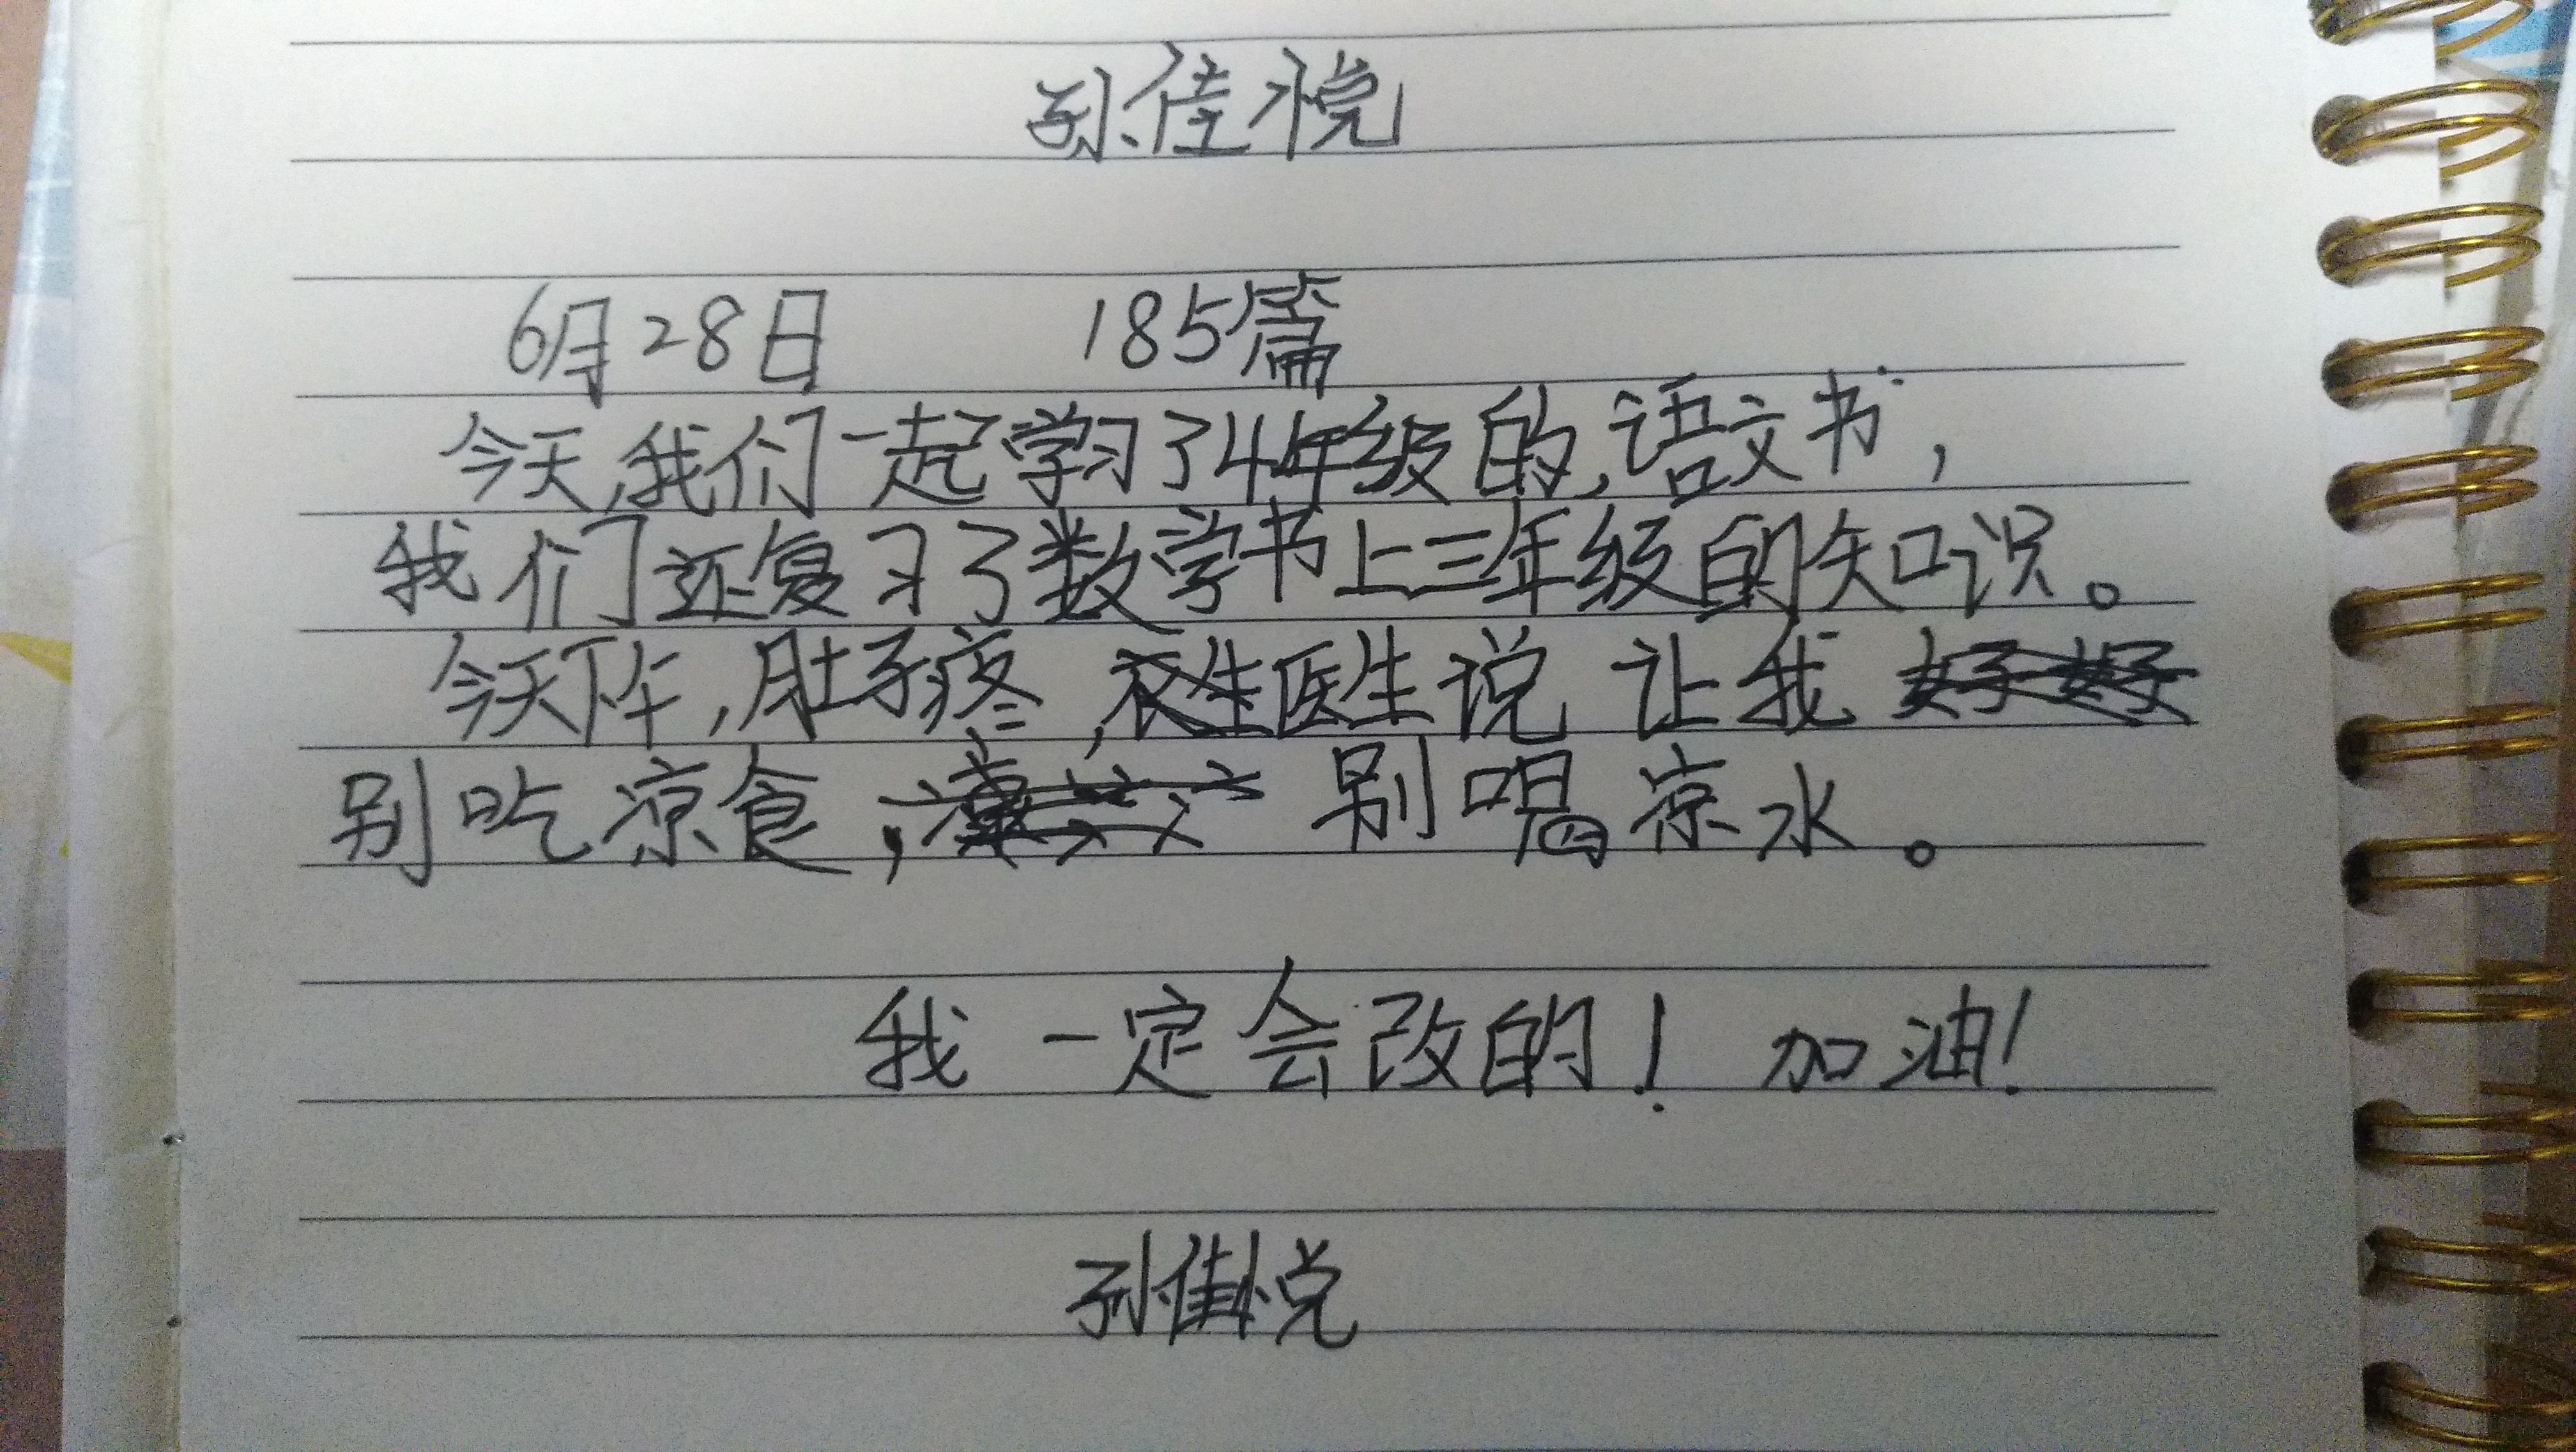 孙佳悦
6月28日 185篇
今天,我们一起学习了4年级的,语文书,
我们还复习了数学书上三年级的知识。
今天下午,肚子疼,医生说 让我
别吃凉食,别喝凉水。
我一定会改的! 加油!
孙佳悦